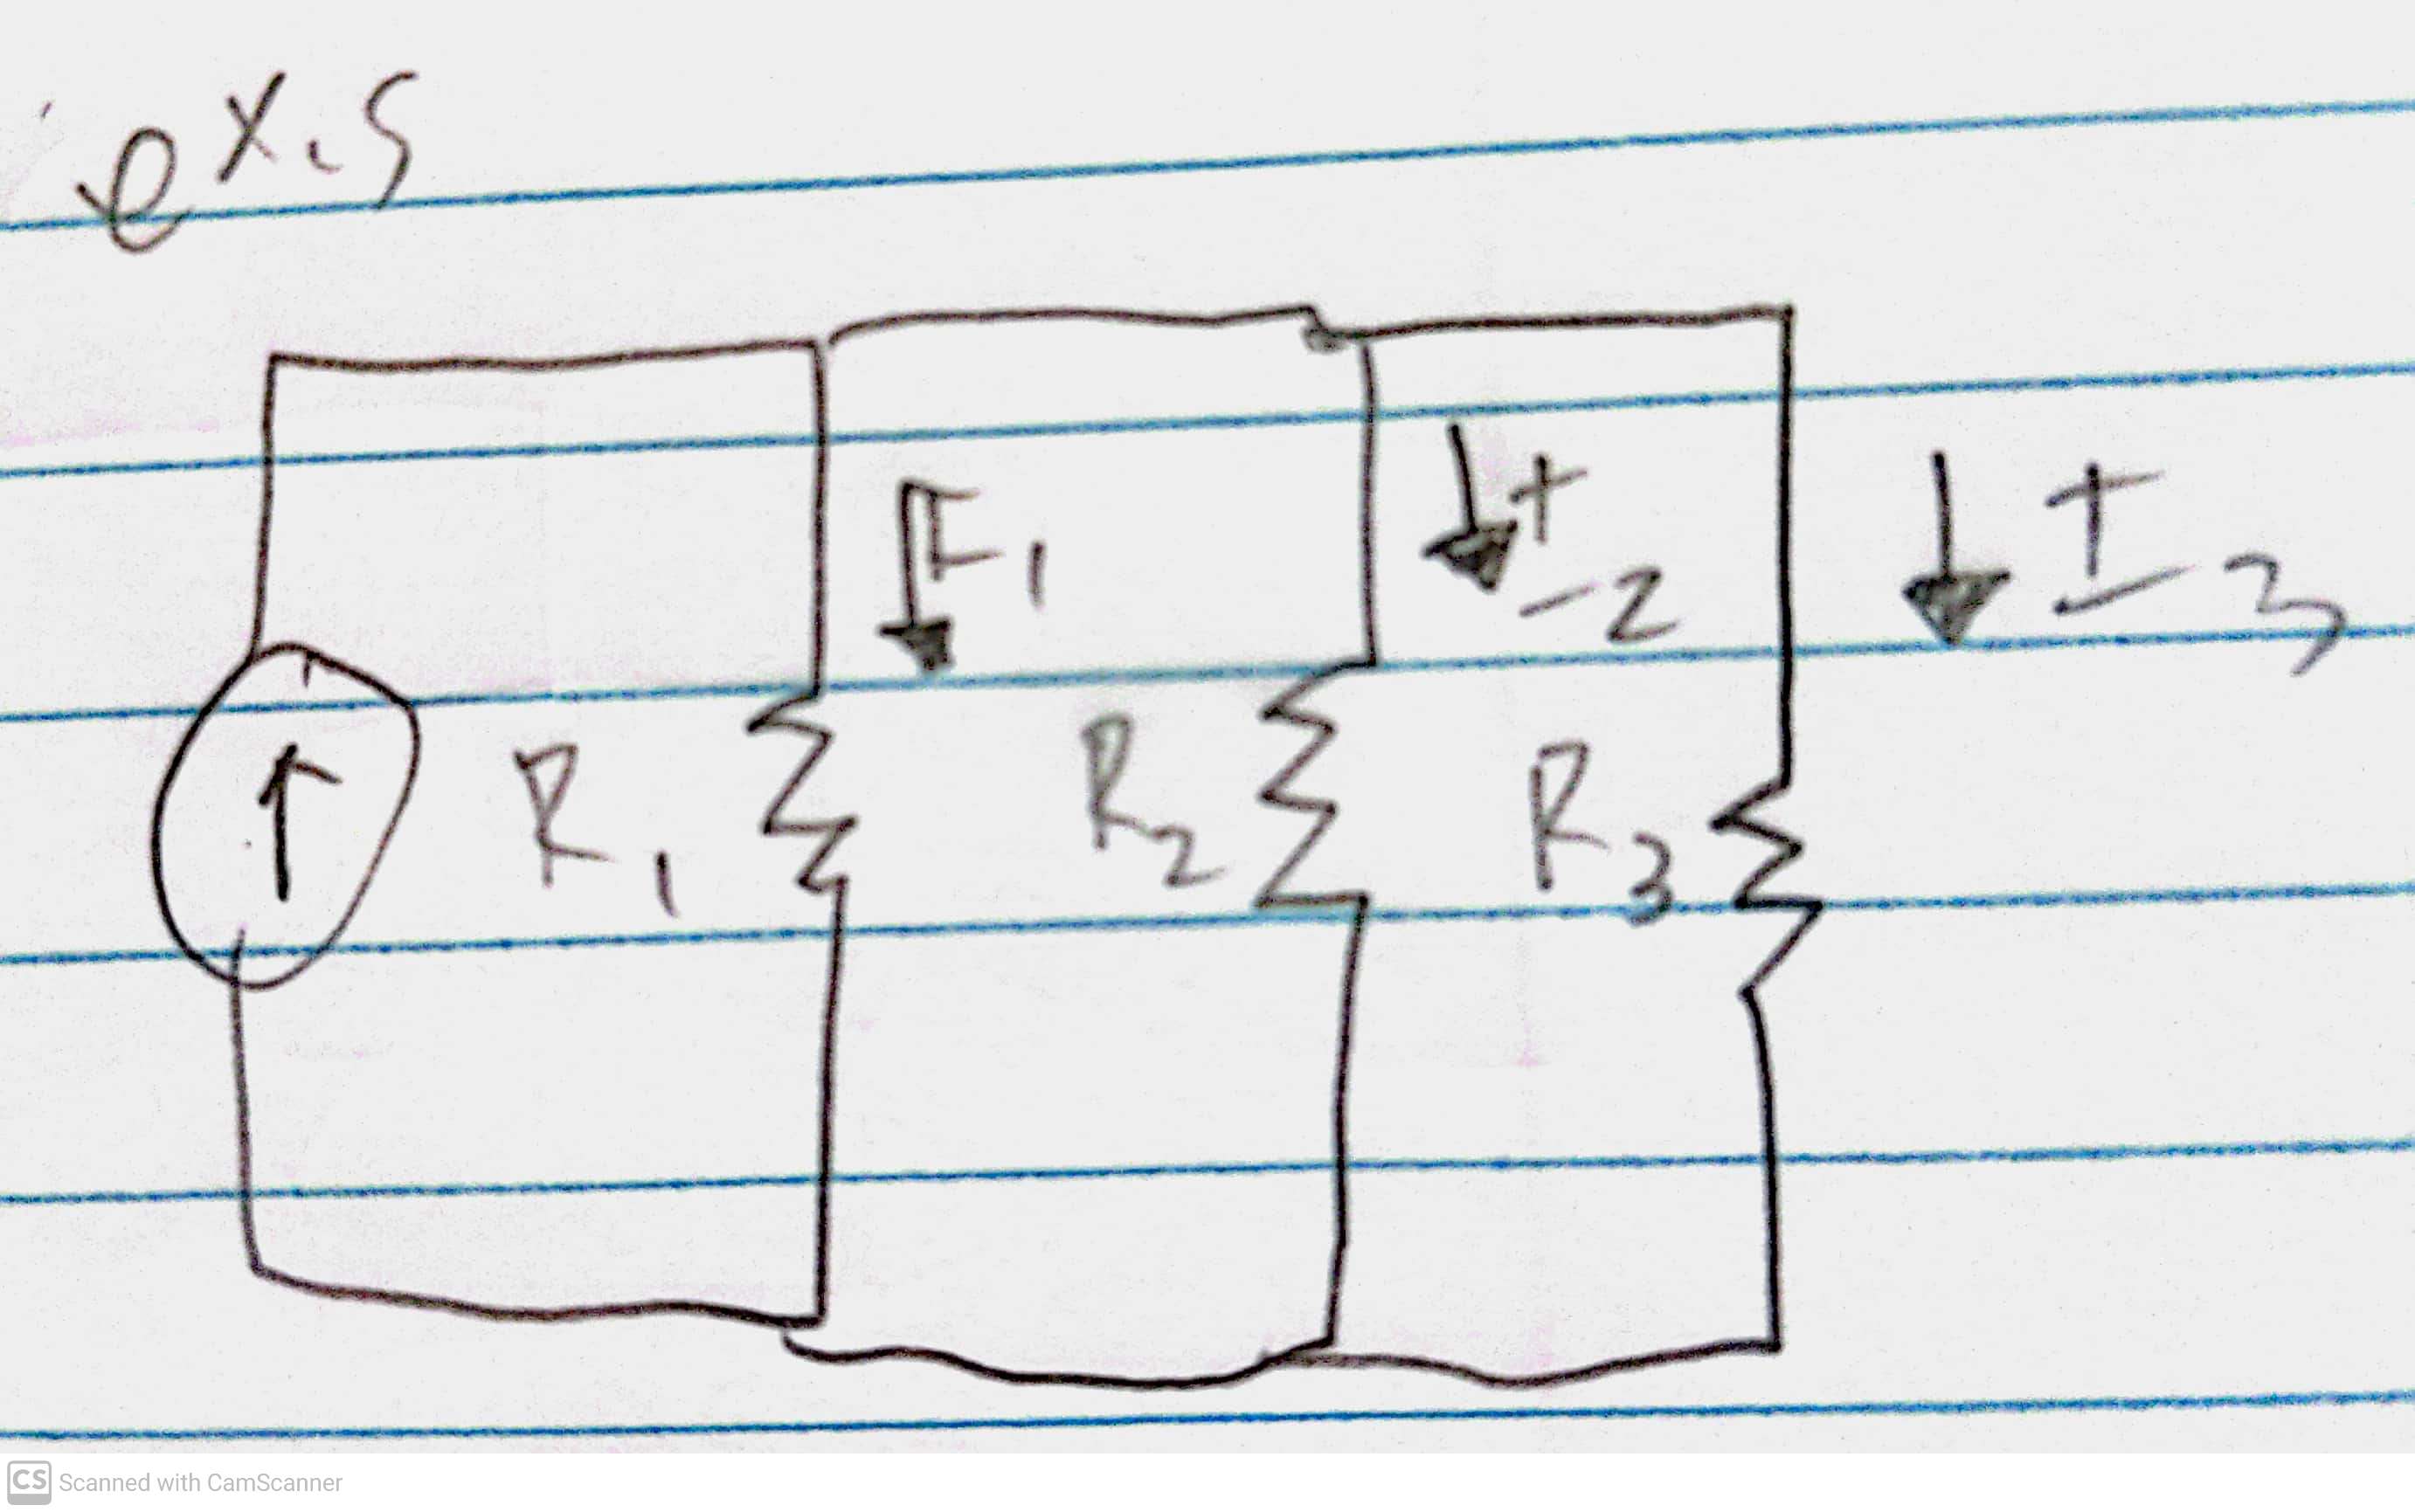 ex.5
I1
I2
I3
R1
R2
R3
CS Scanned with CamScanner